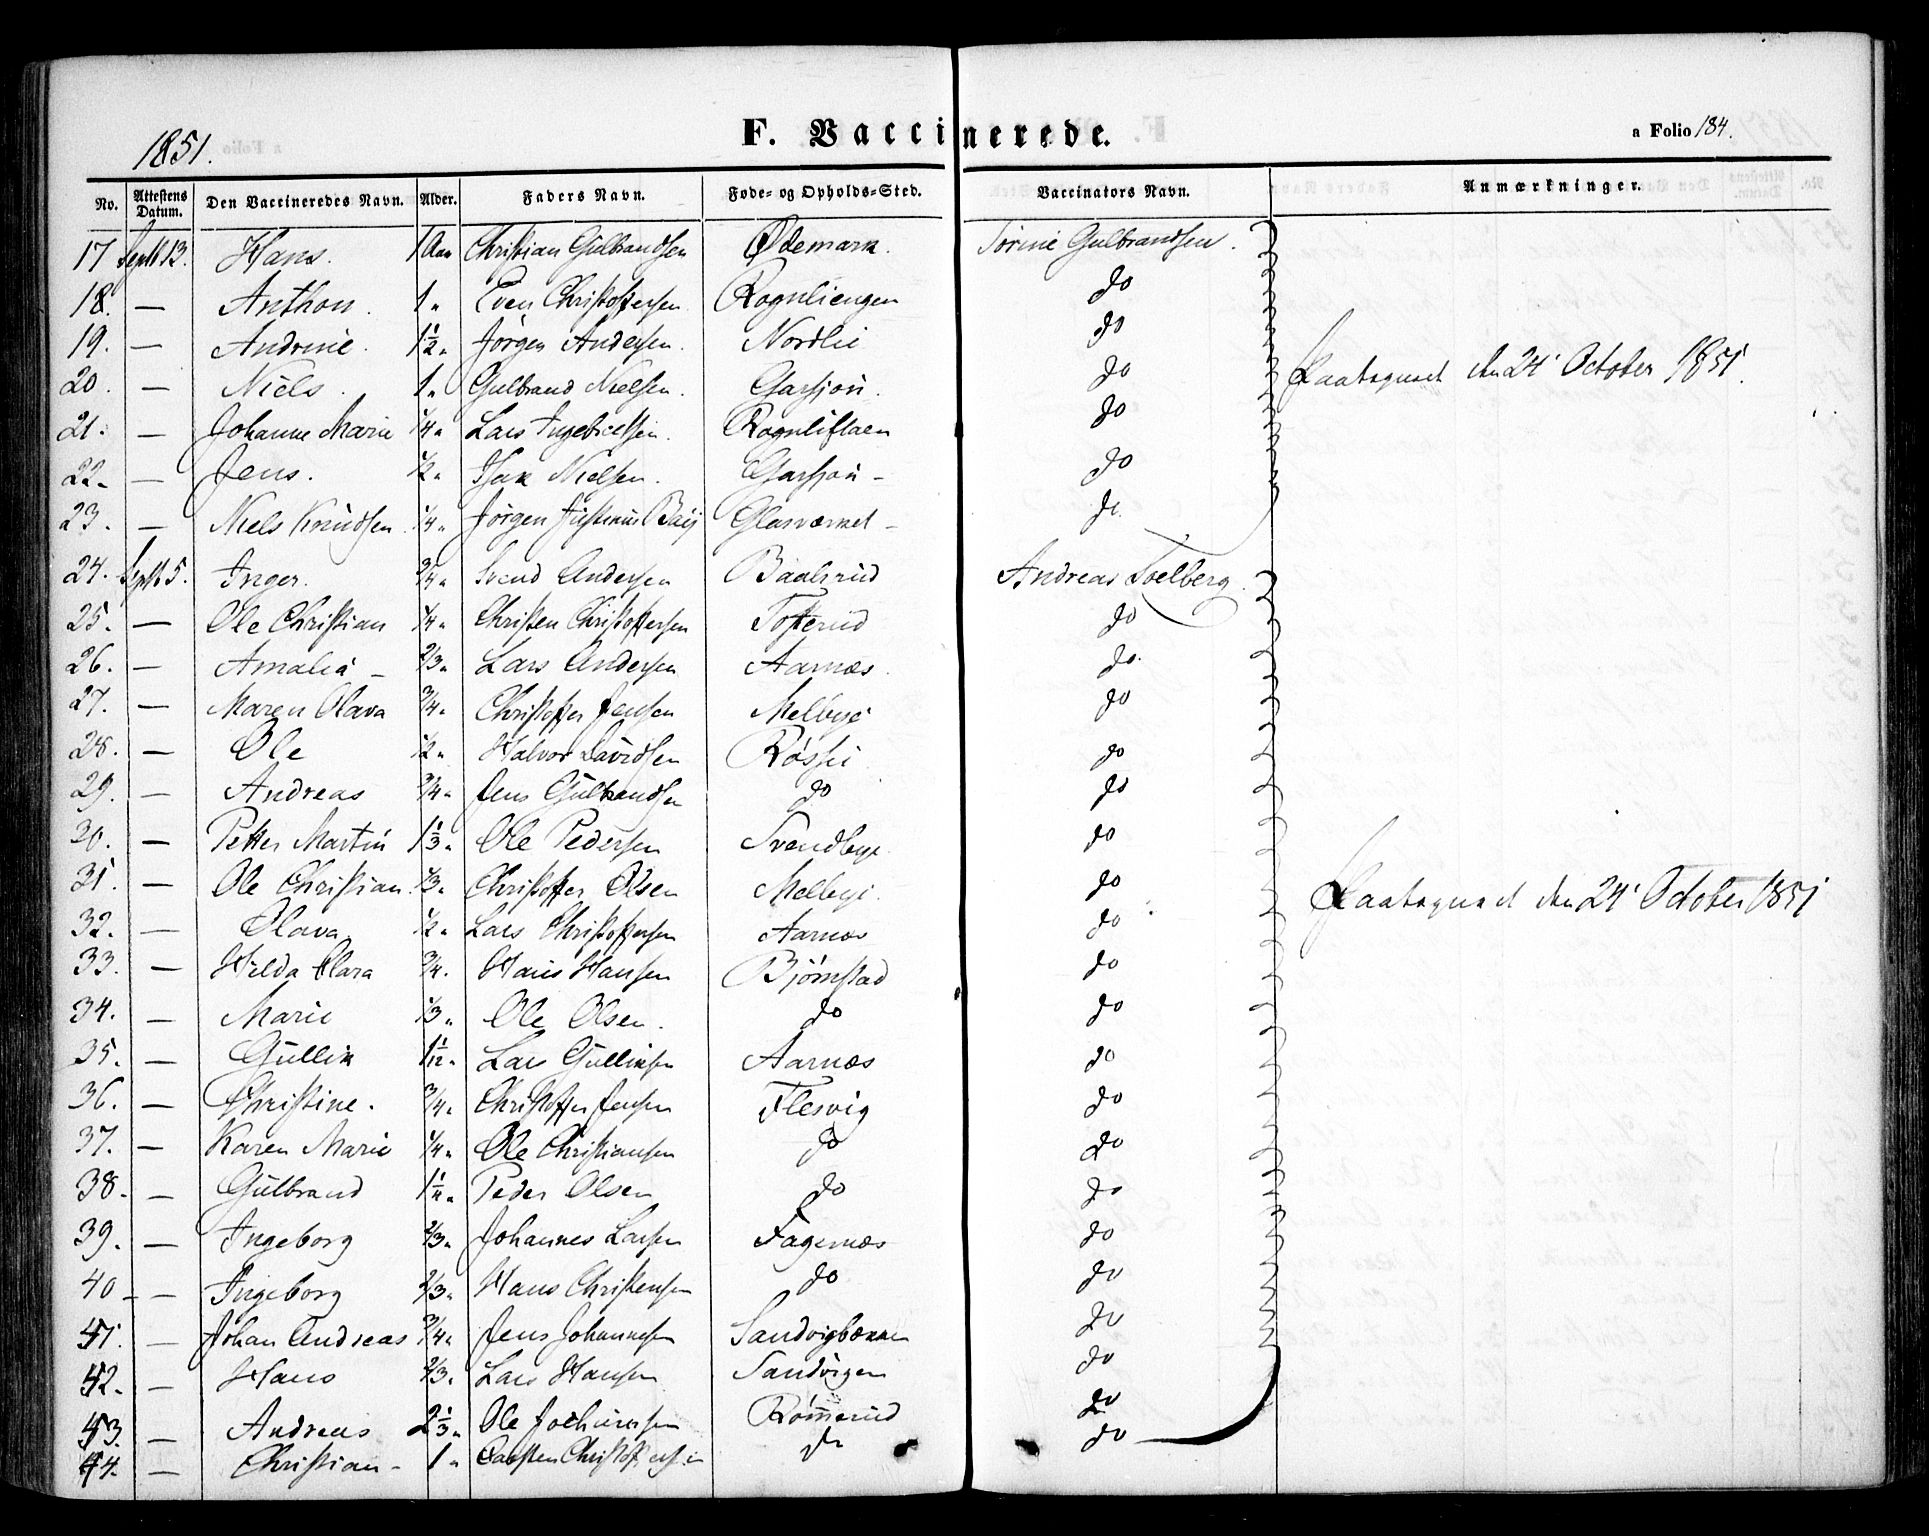 1851.
F. Vaccinerede.
a Folio 184.
No. Attestens Datum. Den Vaccineredes Navn. Alder. Faders Navn. Føde- og Opholds-Sted. Vaccinators Navn. Anmærkninger.
17 Sept 13. Hans. 1 Aar Christian Gulbrandsen Ødemark. Gulbrandsen.
18. — Anthon. 1 " Even Christoffersen Rognliengen do
19. — Andrine. 1½ " Jörgen Andersen. Nordlie do
20. — Niels. 1 " Gulbrand Nielsen. Garsjøn. do den 24' October 1851.
21. — Johanne Marie 1/4 " Lars Ingebretsen. Rognliflaen do
22. — Jens. 1/2 " Isak Nielsen. Garsjøn - do
23. — Niels Knudsen 1/4 " Jörgen Glasværket - do
24. Sept 5. Inger. 3/4 " Svend Andersen Baalsrud Andreas Toelberg.
25. — Ole Christian 1/4 " Christen Christoffersen Tofterud do
26. — Amalia - 2/3 " Lars Andersen Aarnæs. do.
27. — Maren Olava 3/4 " Christoffer Jensen Melbye do
28. — Ole 1/2 " Halvor Davidsen do
29. — Andreas 3/4 " Jens Gulbrandsen do do
30. — Petter Martin 1 1/3 " Ole Pedersen Svendbye. do
31. — Ole Christian. 1/3 " Christoffer Olsen Melbye. do den 24' October 1851
32. — Olava 1/2 " Lars Christoffersen Aarnæs do
33. — Hilda Clara 3/4 " Hans Hansen Bjørnstad do
34. — Marie 1/3 " Ole Olsen. do do
35. — Gullik 1 1/12 " Lars Gulliksen Aarnæs do
36. — Christine. 3/4 " Christoffer Jensen Flesvig do
37. — Karen Marie 1/4 " Ole Christiansen do do
38. — Gulbrand 1¼ " Peder Olsen do do
39. — Ingeborg 2/3 " Johannes Larsen Fagernæs do
40 - — Ingeborg 2/3 " Hans Christensen do do
41. — Johan Andreas 3/4 " Jens Johannesen Sandvigbakken do
42. — Hans 2/3 " Lars Hansen Sandvigen do
43. — Andreas 2 1/3 " Ole Jochumsen Rømmerud do
44. — Christian - 1 " Carsten Christoffersen do do